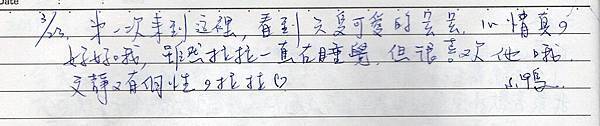 Date
3/23, 第一次來到這裡, 看到天隻可愛的昙昙, 心情真的
好好哦, 雖然拉拉一直在睡覺, 但很喜欢他哦
文靜又有個性, 拉拉♡
小鴨